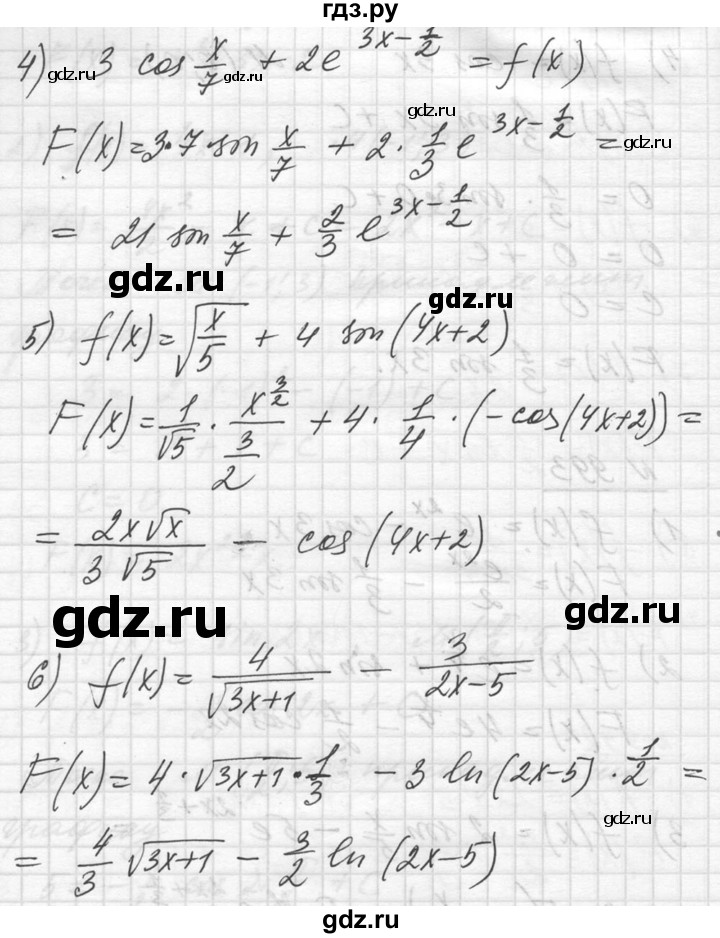 гдз.ру
4) 3 cos x/7 + 2e^(3x - 1/2) = f(x)
F(x) = 3·7·sin x/7 + 2· 1/3 e^(3x - 1/2) =
= 21 sin x/7 + 2/3 e^(3x - 1/2)
gdz.ru gdz.ru
5) f(x) = √(x/5) + 4 sin(4x+2)
F(x) = 1/√5 · x^(3/2)/(3/2) + 4· 1/4 ·(-cos(4x+2)) =
= 2x√x / 3√5 - cos(4x+2)
gdz.ru gdz.ru
6) f(x) = 4/√(3x+1) - 3/(2x-5)
F(x) = 4·√(3x+1)· 1/3 - 3 ln(2x-5)· 1/2 =
gdz.ru
= 4/3 √(3x+1) - 3/2 ln(2x-5)
gdz.ru